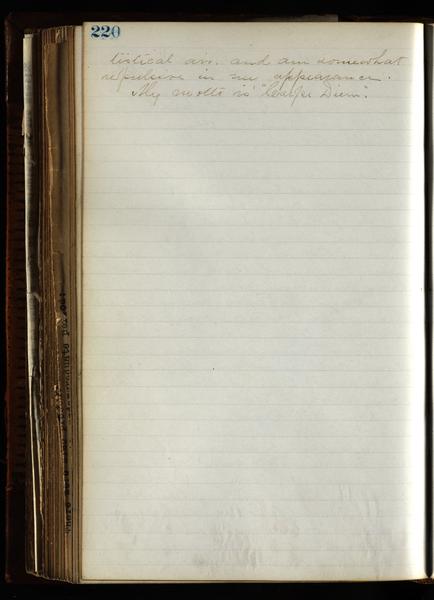 220
tistical air. and am somewhat
repulsive in my appearance.
My motto is "Carpe Diem".